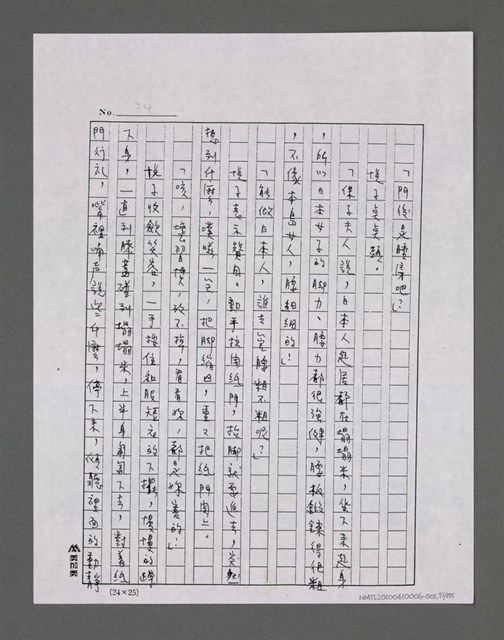 No. 24
「門後是臥房吧？」
埃子点点頭。
「保子夫人說，日本人起居都在塌塌米，坐下來起身
，所以日本女子的脚力、腰力都很強健，腰板鍛鍊得很粗
，不像本島女人，腰細細的！」
「能做日本人，誰去管腰粗不粗呢？」
埃子表示贊同。動手拉開紙門，抬脚就要進去，突然
想到什麼，噗嗤一笑，把脚縮回，重又把紙門關上。
「咳，壞習慣，改不掉，看看妳，都是妳害的！」
埃子收斂笑容，一手按住和服短衣的下擺，慢慢的蹲
下身，一直到膝蓋碰到塌塌米，上半身匍匐下去，對着紙
門行礼，嘴裡喃喃說些什麼，停下來，傾聽裡面的動靜
(24×25)
NMTL20100410006-001